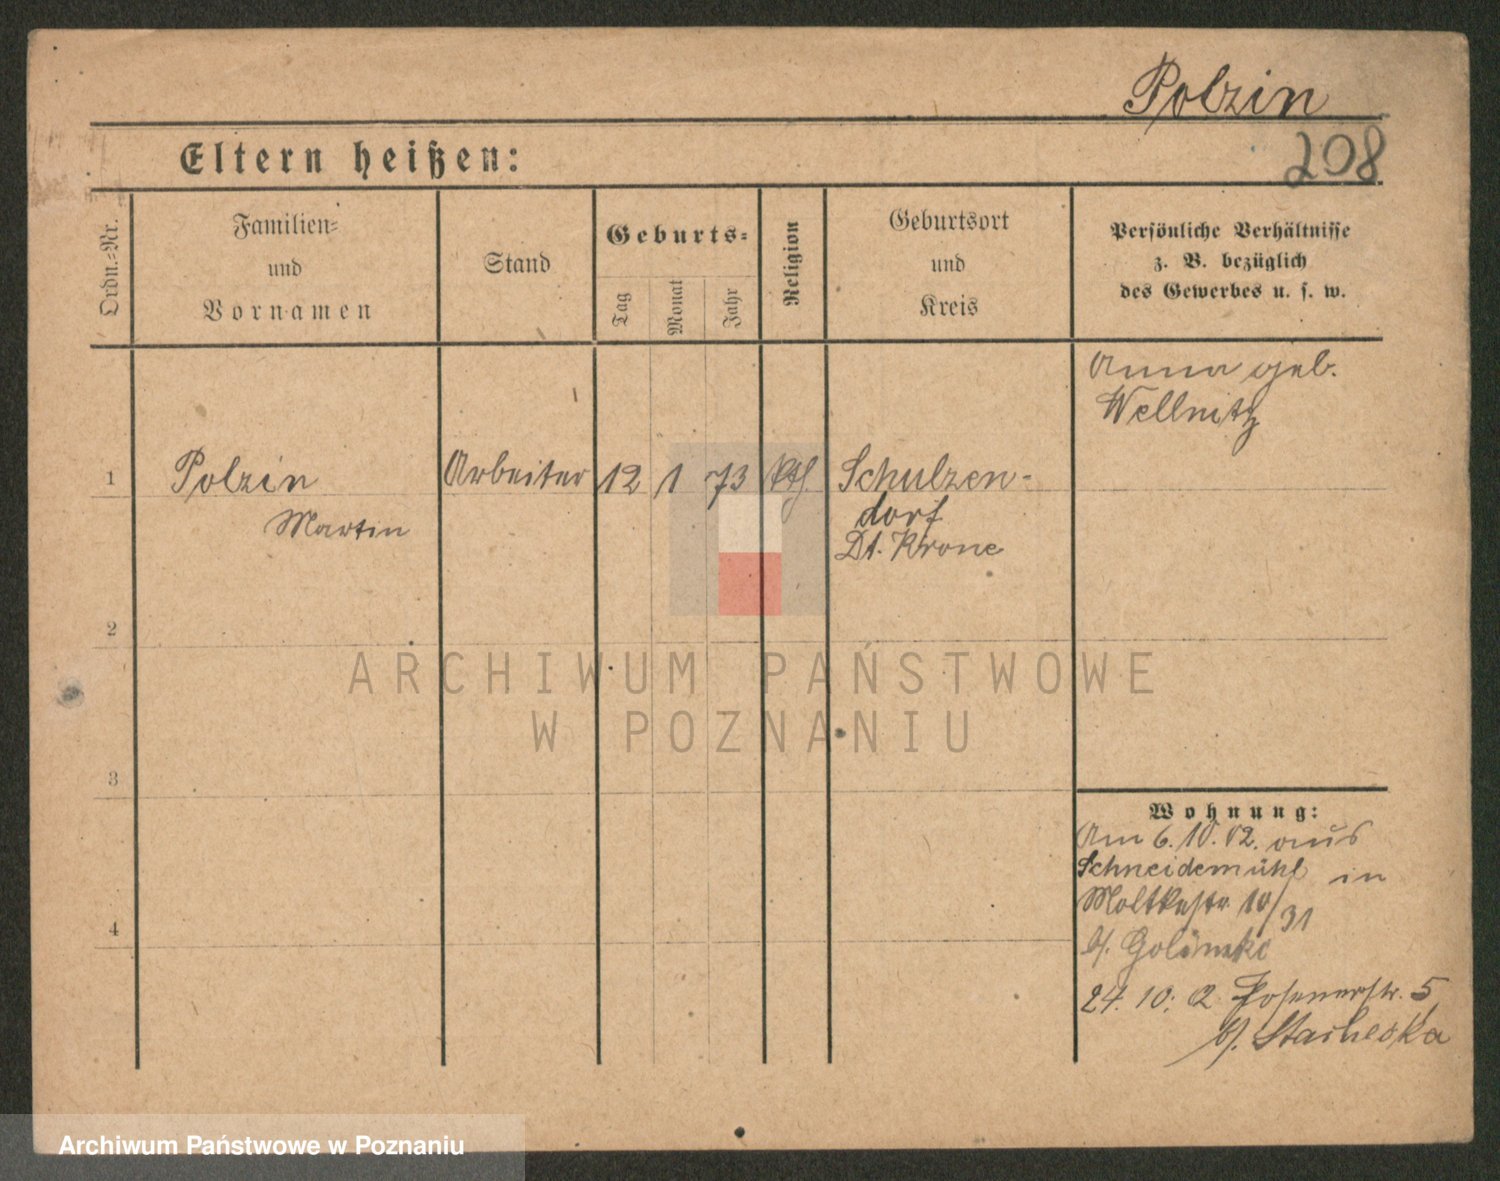 Polzin
208
Eltern heißen:
Ordn.-Nr.
Familien-
und
Vornamen
Stand
Geburts-
Tag
Monat
Jahr
Religion
Geburtsort
und
Kreis
Persönliche Verhältnisse
z. B. bezüglich
des Gewerbes u. s. w.
Anna geb.
Wellnitz
1
Polzin
Martin
Arbeiter
12
1
73
kth.
Schulzen-
dorf
Dt. Krone
2
3
4
Wohnung:
Am 6.10.02. aus
Schneidemühl in
Moltkestr 10/31
b/.
24. 10. 2. Posenerstr. 5
b/.
ARCHIWUM PAŃSTWOWE
W POZNANIU
Archiwum Państwowe w Poznaniu